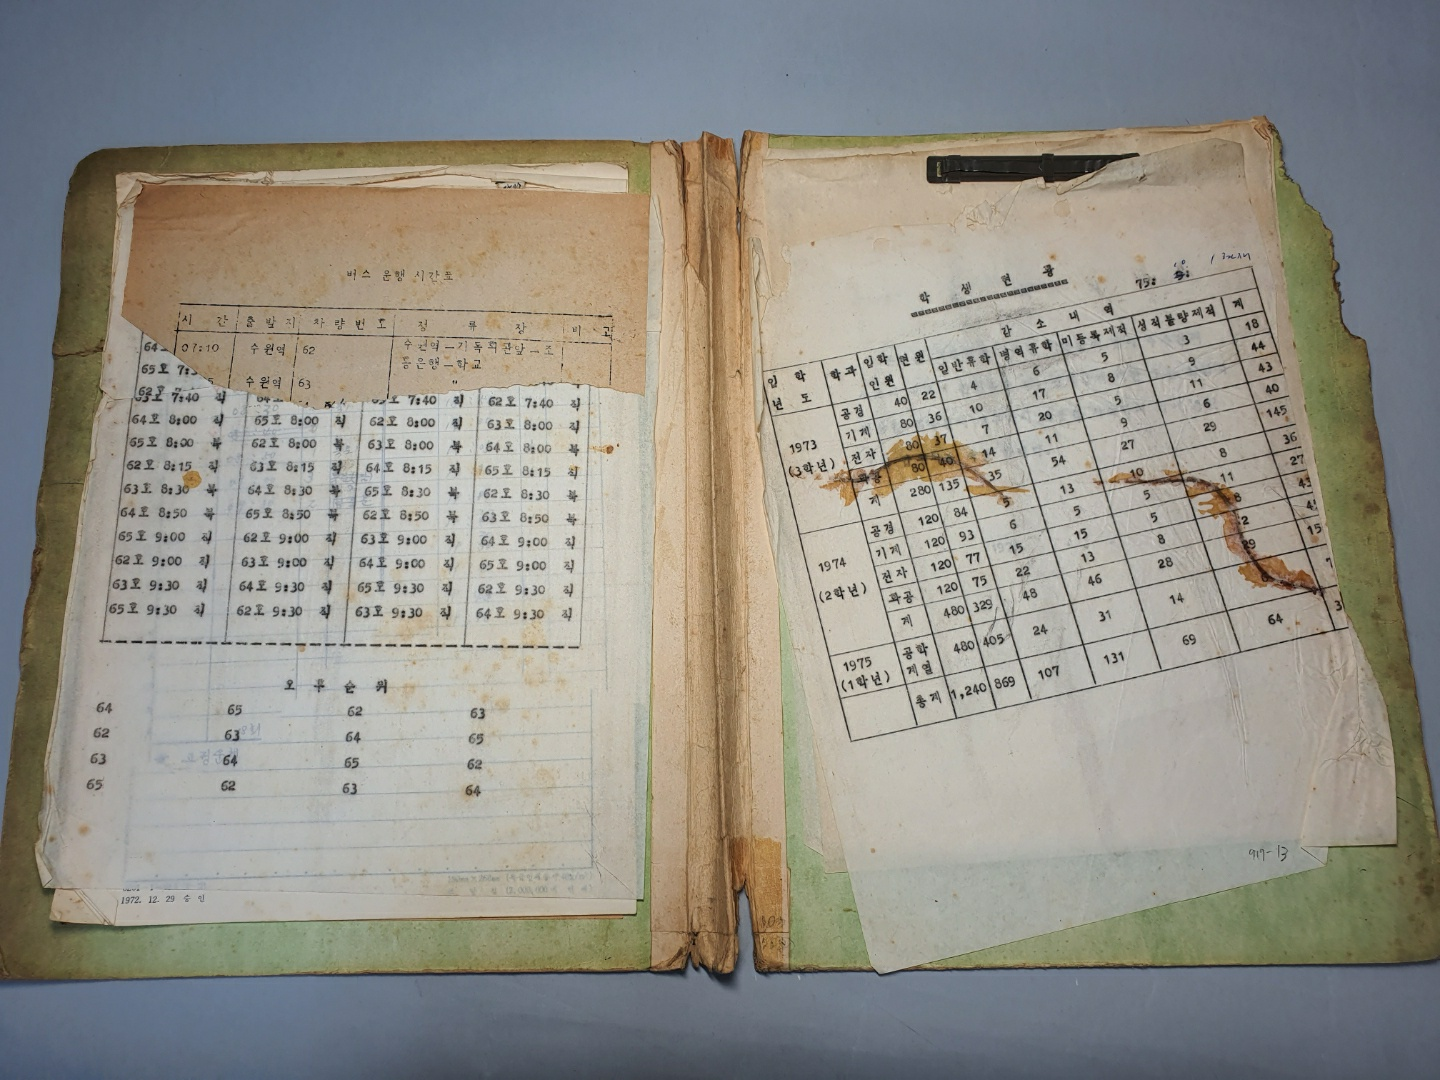 버스 운행 시간표
시 간 출발지 차량번호 정 류 장 비 고
07:10 수원역 62 수원역—기독회관앞—조
흥은행—학교
수원역 63 "
64
65호 7:3
63호 7:40 직 62호 7:40 직 62호 7:40 직
64호 8:00 직 65호 8:00 직 62호 8:00 직 63호 8:00 직
65호 8:00 북 62호 8:00 북 63호 8:00 북 64호 8:00 북
62호 8:15 직 63호 8:15 직 64호 8:15 직 65호 8:15 직
63호 8:30 북 64호 8:30 북 65호 8:30 북 62호 8:30 북
64호 8:50 북 65호 8:50 북 62호 8:50 북 63호 8:50 북
65호 9:00 직 62호 9:00 직 63호 9:00 직 64호 9:00 직
62호 9:00 직 63호 9:00 직 64호 9:00 직 65호 9:00 직
63호 9:30 직 64호 9:30 직 65호 9:30 직 62호 9:30 직
65호 9:30 직 62호 9:30 직 63호 9:30 직 64호 9:30 직
오 후 순 위
64 65 62 63
62 63 64 65
63 64 65 62
65 62 63 64
1972. 12. 29 승 인
학 생 현 황
75:
입 학 년 도 학과 입학인원 현원 감 소 내 역
일반휴학 병역휴학 미등록제적 성적불량제적 계
1973 (3학년) 공경 40 22 4 6 5 3 18
기계 80 36 10 17 8 9 44
전자 80 37 7 20 5 11 43
화공 80 40 14 11 9 6 40
계 280 135 35 54 27 29 145
1974 (2학년) 공경 120 84 5 13 10 8 36
기계 120 93 6 5 5 11 27
전자 120 77 15 15 5 8
화공 120 75 22 13 8
계 480 329 48 46 28 29 15
1975 (1학년) 공학계열 480 405 24 31 14
총계 1,240 869 107 131 69 64 3
917-13